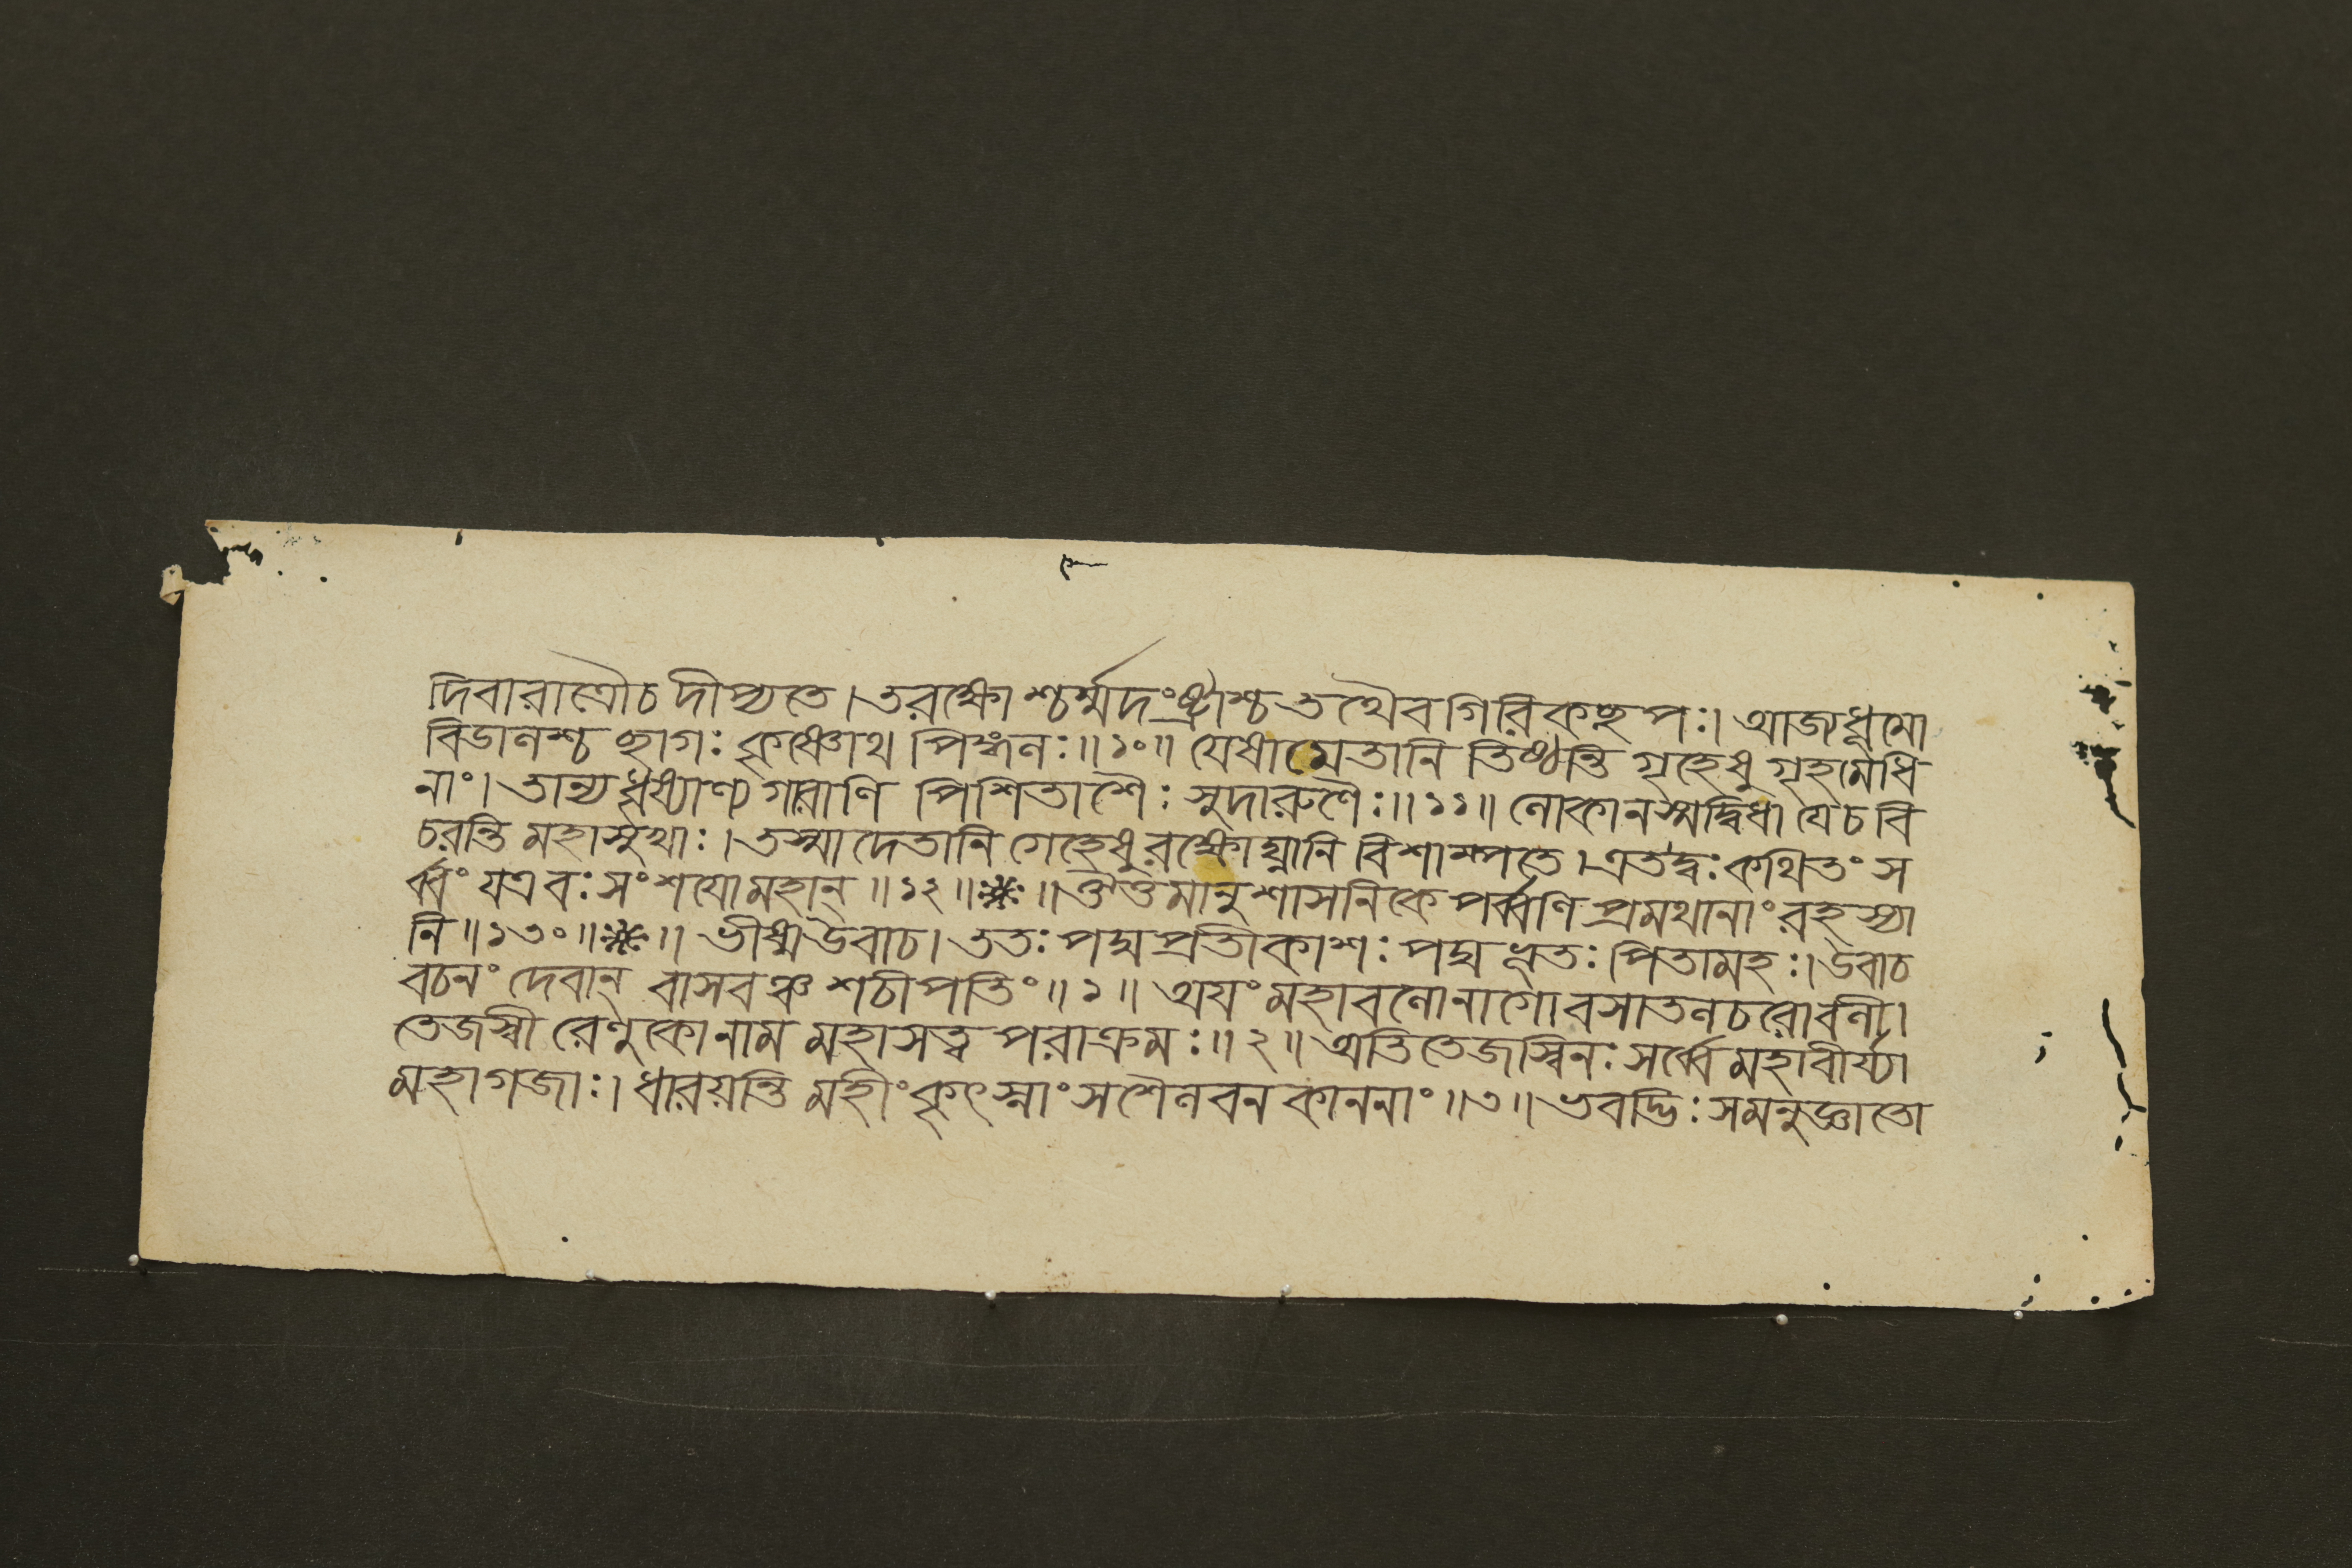 দিবারাত্রৌচ দীপ্যতে। তরক্ষোশ্চর্ম্মদংষ্ট্রাশ্চ তথৈব গিরিকচ্ছপঃ। আজ্যধূমো
বিডালশ্চ ছাগঃ কৃষ্ণোথ পিঙ্গলঃ॥১০॥ যেষামেতানি তিষ্ঠন্তি গৃহেষু গৃহমেধি
নাং। তান্যধৃষ্যাণ্যগারাণি পিশিতাশৈঃ সুদারুণৈঃ॥১১॥ লোকানস্মদ্বিধা যেচ বি
চরন্তি মহাসুখাঃ। তস্মাদেতানি গেহেষু রক্ষোঘ্নানি বিশাম্পতে। এতদ্বঃ কথিতং স
র্ব্বং যত্র বঃ সংশযো মহান্॥১২॥❋॥ ঔত্তমানুশাসনিকে পর্ব্বণি প্রমথানাং রহস্যা
নি॥১৩০॥❋॥ ভীষ্মউবাচ। ততঃ পদ্মপ্রতীকাশঃ পদ্মধৃতঃ পিতামহঃ। উবাচ
বচনং দেবান্ বাসবঞ্চ শচীপতিং॥১॥ অযং মহাবলো নাগো বসাতলচরো বলী।
তেজস্বী রেণুকো নাম মহাসত্ত্বপরাক্রমঃ॥২॥ অতিতেজস্বিনঃ সর্ব্বে মহাবীর্য্যা
মহাগজাঃ। ধারয়ন্তি মহীং কৃৎস্নাং সশৈলবনকাননাং॥৩॥ ভবদ্ভিঃ সমনুজ্ঞাতো